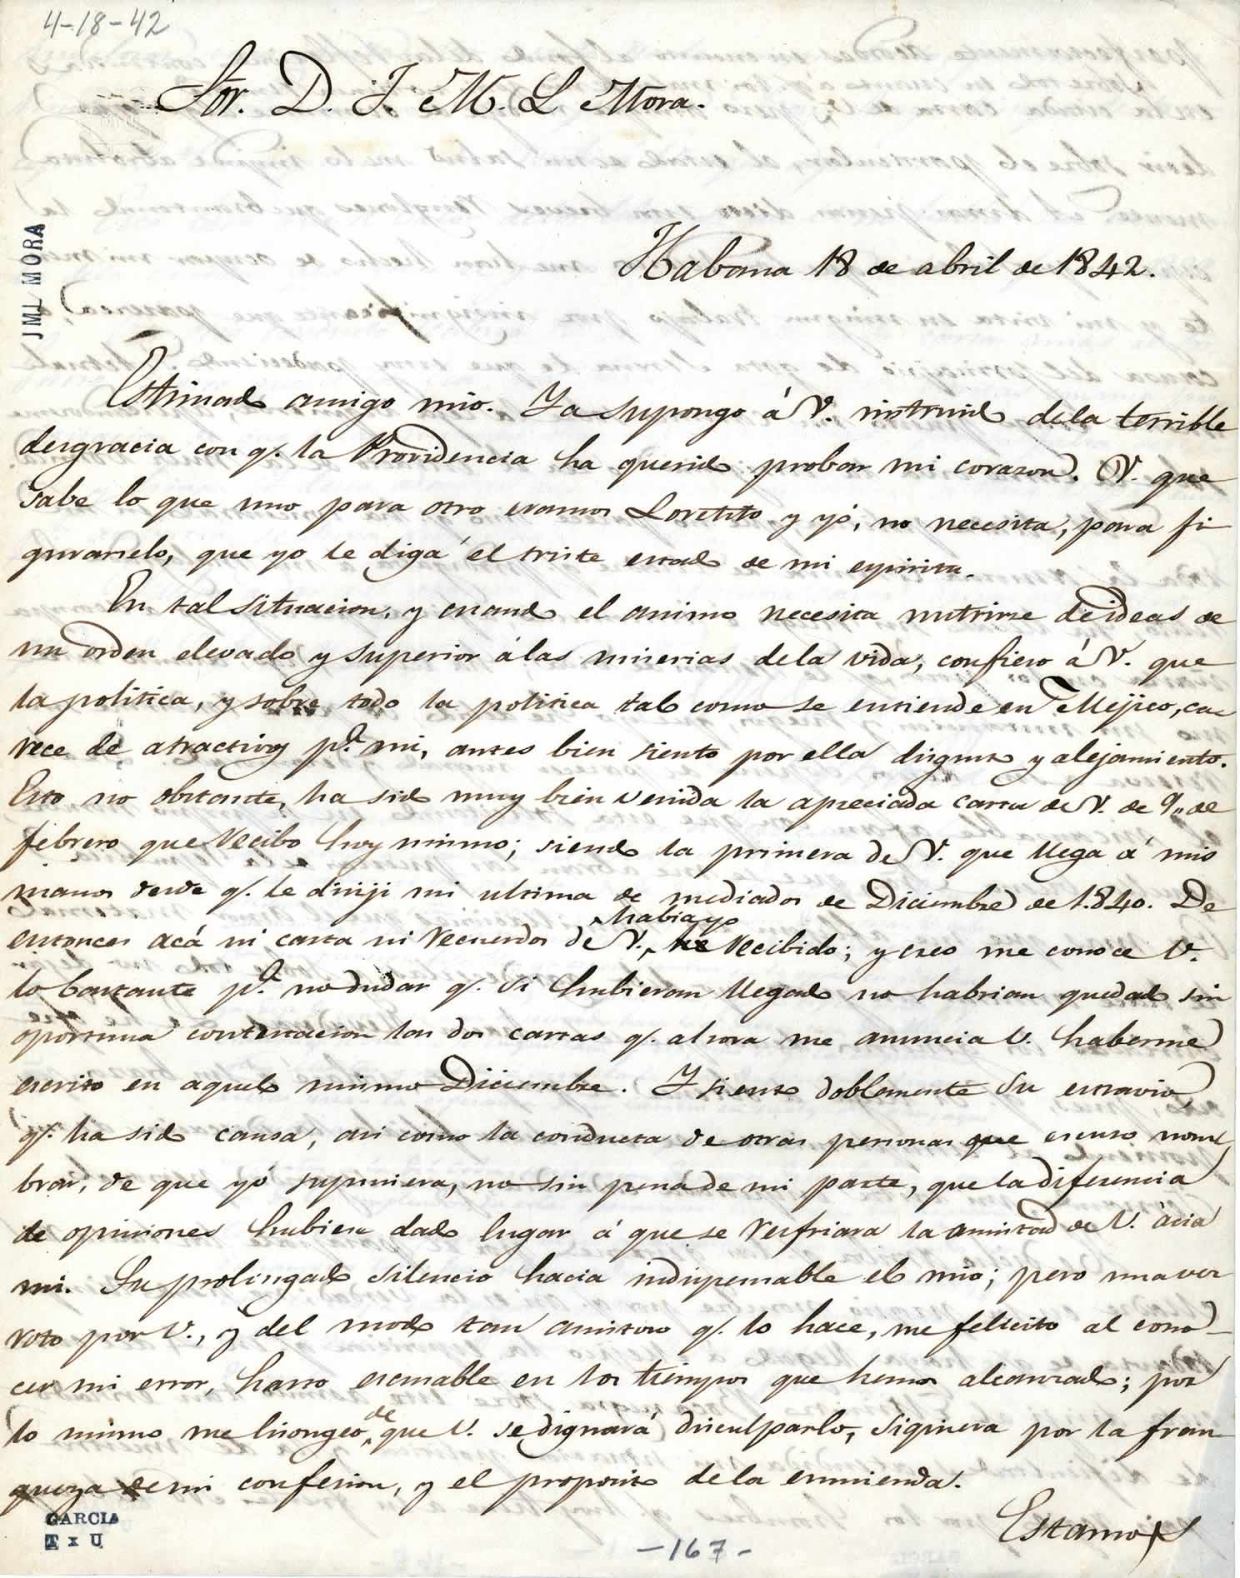 4-18-42
Sor. D. J. M. L. Mora.
JML MORA
Habana 18 de abril de 1842.
Estimado amigo mio. Ya supongo á V. instruido dela terrible
desgracia con q. la Providencia ha querido probar mi corazon. V. que
sabe lo que uno para otro eramos Loretito y yó, no necesita, para fi
gurarselo, que yo le diga el triste estado de mi espiritu.
En tal situacion, y cuando el animo necesita nutrirse de ideas de
un orden elevado y superior álas miserias dela vida, confieso á V. que
la politica, y sobre todo la politica tal como se entiende en Mejico, ca-
rece de atractivos pa. mi, antes bien siento por ella disgusto y alejamiento.
Esto no obstante, ha sido muy bien venida la apreciada carta de V. de 9,, de
febrero que recibo hoy mismo; siendo la primera de V. que llega á mis
manos desde q. le dirijí mi ultima de mediados de Diciembre de 1.840. De
entonces acá ni carta ni recuerdos de V., he recibido; y creo me conoce V.
habia yo
lo bastante pa. no dudar q. si hubieran llegado no habrian quedado sin
oportuna contestacion las dos cartas q. ahora me anuncia V. haberme
escrito en aquel mismo Diciembre. Y siento doblemente su estravio,
q. ha sido causa, asi como la conducta de otras personas que escuso nom
brar, de que yó supusiera, no sin pena de mi parte, que la diferencia
de opiniones hubiese dado lugar á que se resfriara la amistad de V. ácia
mi. Su prolongado silencio hacia indispensable el mio; pero una vez
roto por V., y del modo tan amistoso q. lo hace, me felicito al cono-
cer mi error, harto escusable en los tiempos que hemos alcanzado; por
lo mismo me lisongeo de que V. se dignará disculparlo, siquiera por la fran
queza de mi confesion, y el proposito de la enmienda.
Estamos
GARCIA
T x U
-167-